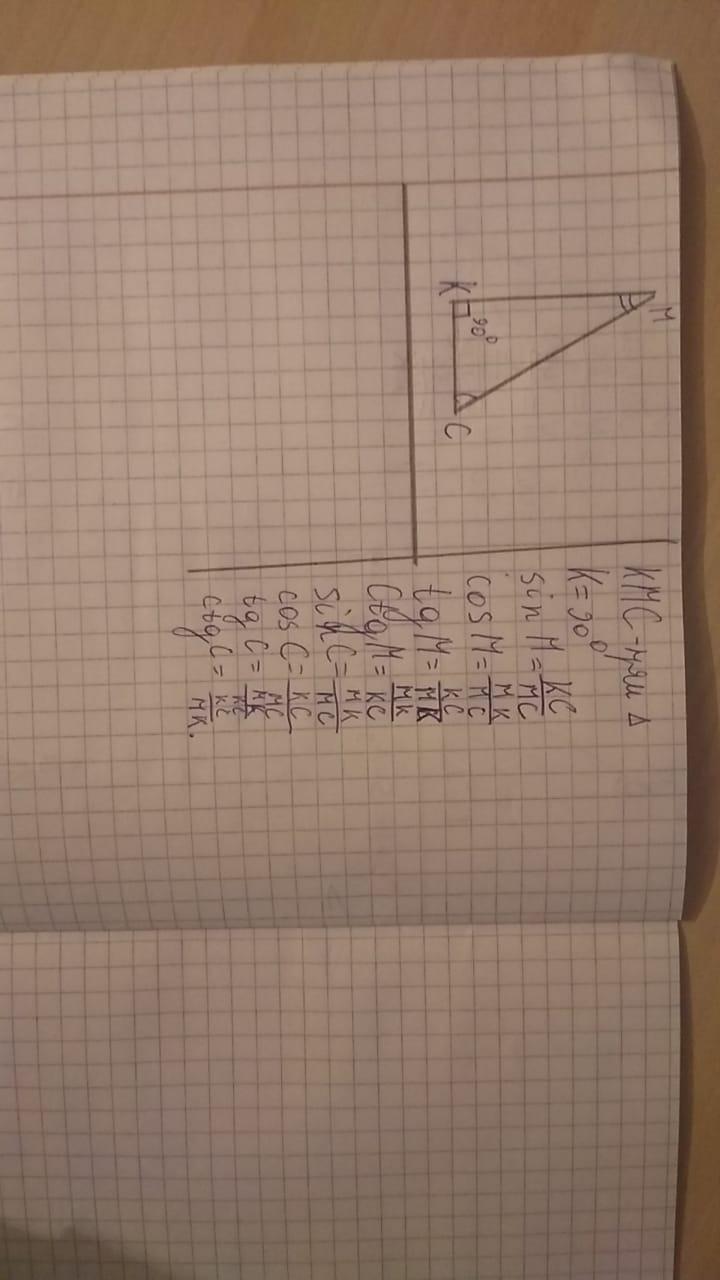 M
90°
K
C
KMC - прям Δ
K = 90°
sin M = KC/MC
cos M = MK/MC
tg M = KC/MK
ctg M = MK/KC
sin C = MK/MC
cos C = KC/MC
tg C = MK/KC
ctg C = KC/MK.